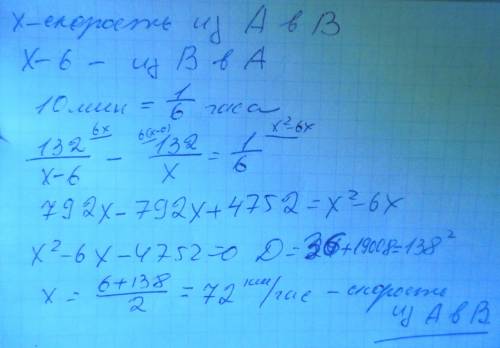 x-скорость из А в В
x-6 - из В в А
10 мин = 1/6 часа
132/(x-6) ^6x - 132/x ^6(x-6) = 1/6 ^x²-6x
792x-792x+4752=x²-6x
x²-6x-4752=0 D=36+19008=138²
x = (6+138)/2 = 72 км/час - скорость
из А в В